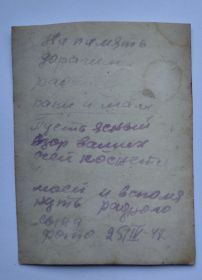 На память
дорогим
папе и маме
Пусть ясный
взор ваших
очей коснется
моей и вспомя
нуть родного
сына
фото 25/IV-47